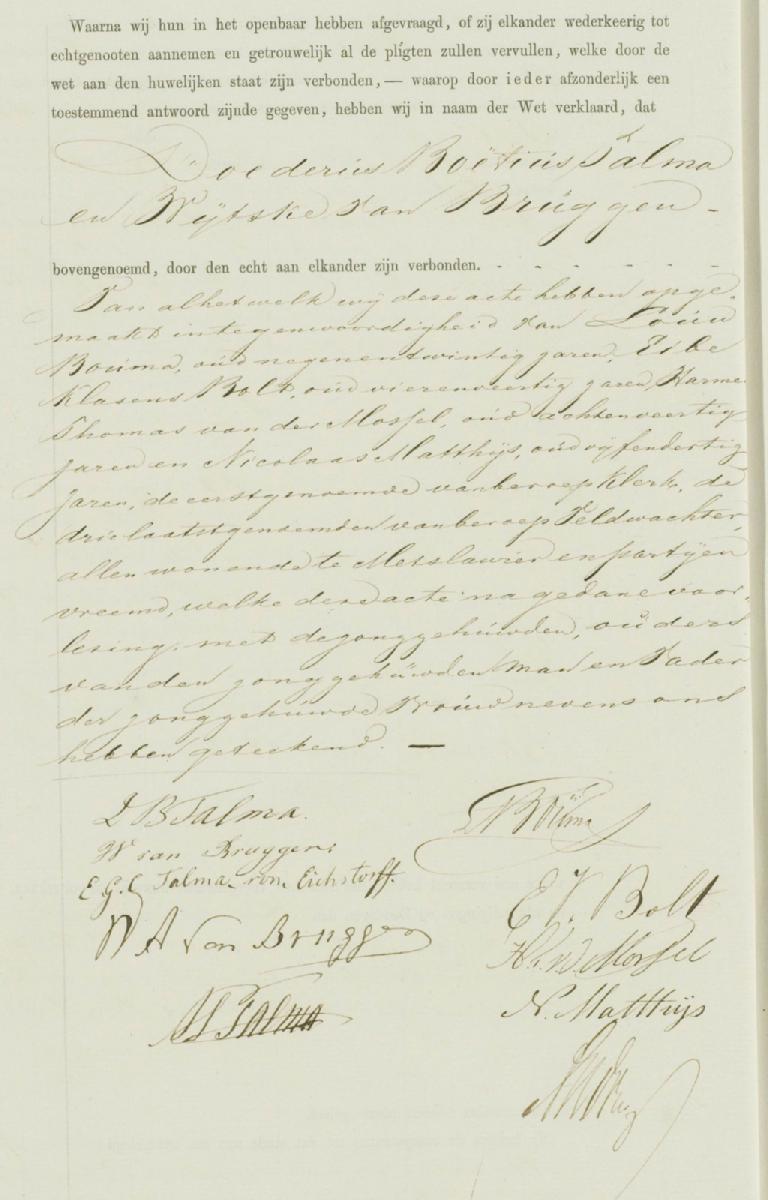 Waarna wij hun in het openbaar hebben afgevraagd, of zij elkander wederkeerig tot
echtgenooten aannemen en getrouwelijk al de pligten zullen vervullen, welke door de
wet aan den huwelijken staat zijn verbonden, — waarop door ieder afzonderlijk een
toestemmend antwoord zijnde gegeven, hebben wij in naam der Wet verklaard, dat
Doederius Boëtius Talma
en Wytske van Bruggen -
bovengenoemd, door den echt aan elkander zijn verbonden. - - - - - -
Van al hetwelk wij deze acte hebben opge-
maakt in tegenwoordigheid van Louw
Bouma, oud negenentwintig jaren, Eibe
Klasens Bolt, oud vierenveertig jaren, Harme
Thomas van der Mossel, oud achtenveertig
jaren en Nicolaas Matthijs, oud vijfendertig
jaren, de eerstgenoemde van beroep Klerk, de
drie laatstgenoemden van beroep Veldwachter,
allen wonende te Metslawier en partijen
vreemd, welke deze acte na gedane voor-
lezing, met de jonggehuwden, ouders
van den jonggehuwden man en Vader
der jonggehuwde Vrouw nevens ons
hebben geteekend. —
D B Talma.
W van Bruggen.
E.G.C Talma-von Eichstorff.
W A Van Bruggen
Talma
Bouma
E K. Bolt
vd Mossel
N. Matthijs